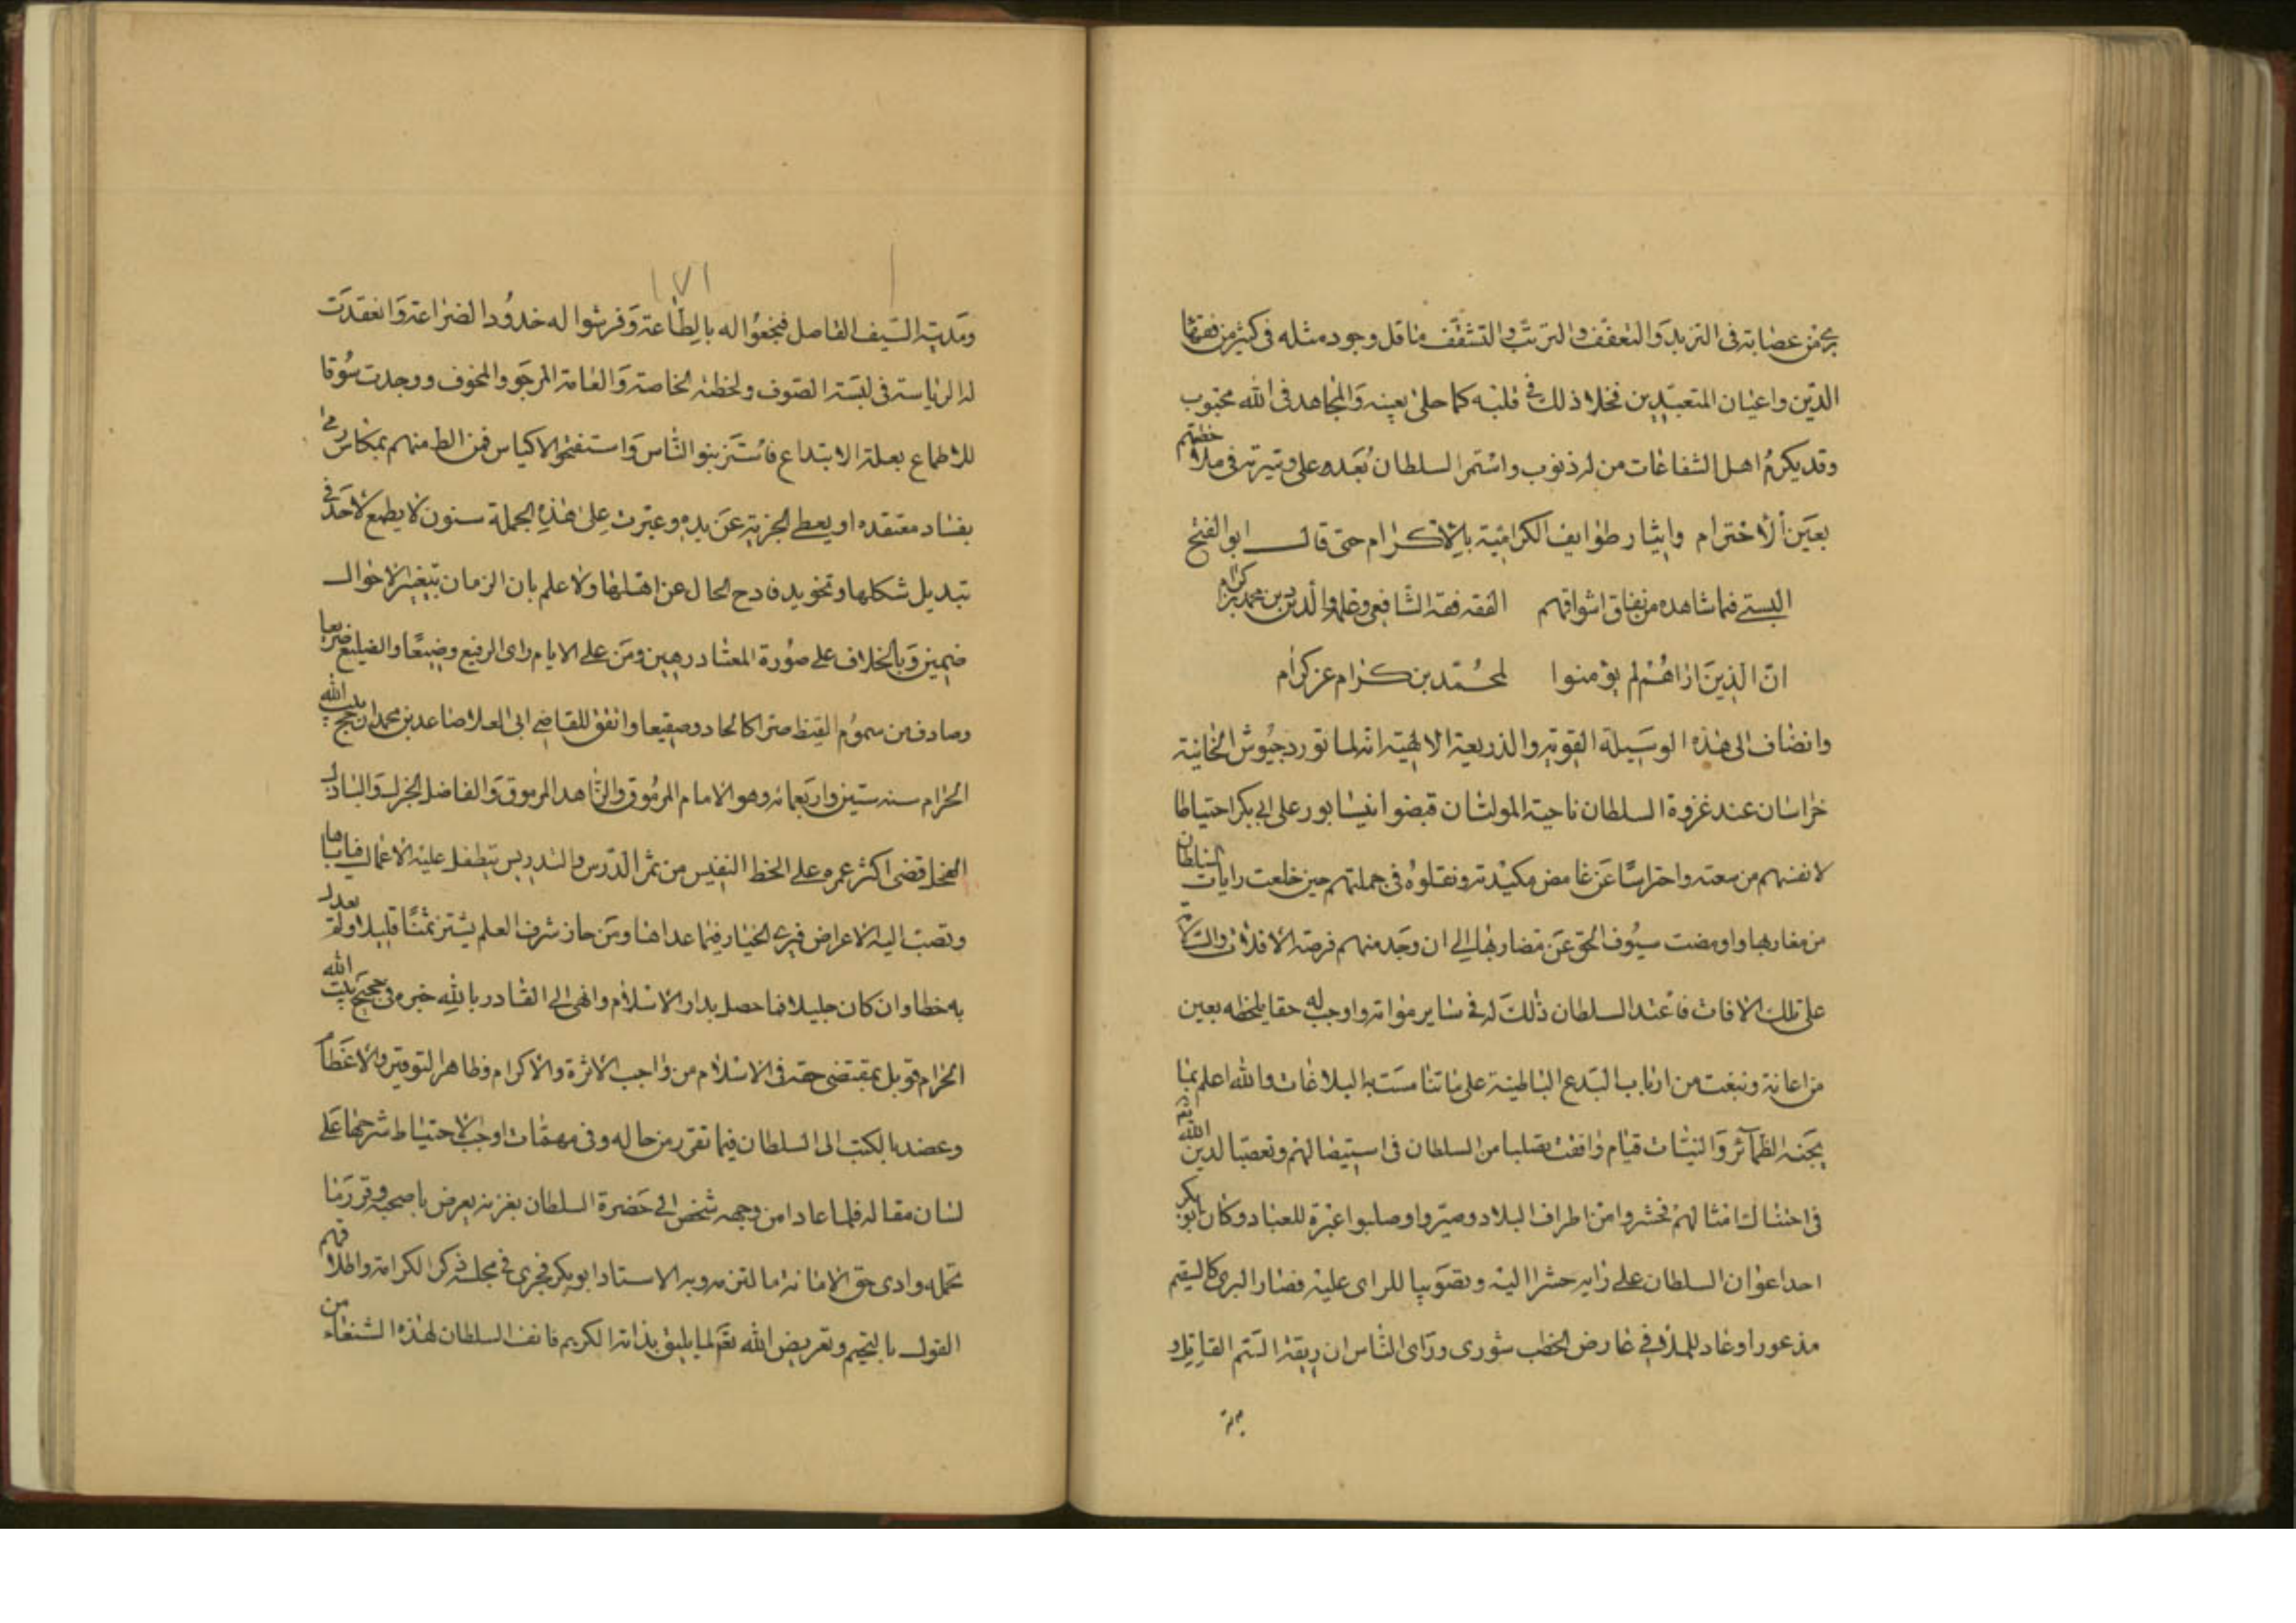 يجمع من عصابته فى التزهد والتعفف والترتب والتقشف ما قل وجود مثله فى كثير من فقهاء
الدين واعيان المتعبدين فحلا ذلك فى قلبه كما حلى بعينه والمجاهد فى الله محبوب
وقد يكرم اهل الشفاعات من له ذنوب واستمر السلطان بعده على وتيرته فى ملاحظتهم
بعين الاحترام وايثار طوايف الكرامية بالاكرام حتى قال ابو الفتح
البستى فما شاهده من نفاق اسواقهم الفقه فقه الشافعى وحده والدين دين محمد بن كرام
ان الذين اراهم لم يؤمنوا لمحمد بن كرام غير كرام
وانضاف الى هذه الوسيلة القوية والذريعة الالهية انه لما تورد جيوش الخانية
خراسان عند غزوة السلطان ناحية المولتان قبضوا نيسابور على ابى بكر احتياطا
لانفسهم من سعته واحتراسا عن غامض مكيدته ونقلوه فى جملتهم حين خلعت رايات السلطان
من مغاربها واومضت سيوف الحق عن مضاربها الى ان وجد منهم فرصة الافلات والسلامة
على تلك الافات فاعتد السلطان ذلك له فى ساير مواته واوجب له حقا يلحظه بعين
من اعانة ونبغت من ارباب البدع الباطنية على ما تناست به البلاغات والله اعلم بما
يجنه الضمآئر والنيات قيام وافقت تصلبا من السلطان فى استيصالهم وتعصبا لدين الله تع
فى اجتثاث امثالهم فحشروا من اطراف البلاد وصيروا وصلبوا عبرة للعباد وكان ابو بكر
احد اعوان السلطان على رايه حشرا اليه وتصويبا للراى عليه فصار البرى كالسقيم
مذعورا وعاد للملاذ فى عارض الخطب شورى وراى الناس ان ريقه السم القاتل و
مدية
١٧١
ومدية السيف الفاصل فبخعوا له بالطاعة وفرشوا له خدود الضراعة وانعقدت
له الرياسة فى لبسة الصوف ولحظته الخاصة والعامة المرجو والمخوف ووجدت سوقا
للاطماع بعلة الابتداع فاستزبنوا الناس واستفتحوا الاكياس فمن الط منهم بمكاس رمى
بفساد معتقده او يعطى الجزية عن يده وعبرت على هذه الجملة سنون لا يطمع لاحد فى
تبديل شكلها وتحويل فادح الحال عن اهلها ولا علم بان الزمان بتغيير الاحوال
ضمين وبالخلاف على صورة المعتاد رهين ومن على الايام راى الرفيع وضيعا والضليع ضريعا
وصادف من سموم القيظ صرا كالحا وصقيعا واتفق للقاضى ابى العلا صاعد بن محمد ان حج بيت الله
الحرام سنة ستين واربعمائه وهو الامام المرموق والزاهد المرموق والفاضل الجزل والبازل
الفحل قضى اكثر عمره على الحظ النفيس من ثمر الدرس والتدريس يتطفل عليه الاعمال فياباها
وتصب اليه الاعراض فيرى الخيار فيما عداها ومن حاز شرف العلم لم يشتر به ثمنا قليلا ولم يعدل
به خطا وان كان جليلا فما حصل بدار الاسلام وانهى الى القادر بالله خبره فى حجيج بيت الله
الحرام قوبل بمقتضى حقه فى الاسلام من واجب الاثرة والاكرام وظاهر التوقير والاعظام
وعضد بالكتب الى السلطان فيما تقرر من حاله وفى مهمات اوجب الاحتياط شرحها على
لسان مقاله فلما عاد من وجهه شخص الى حضرة السلطان بغزنه يعرض ما صحبه وقرر ما
تحمله وادى حق الامانه ما التزمه وبه الاستاد ابو بكر فجرى فى مجلسه ذكر الكرامة واطلاقهم
القول بالتجسيم وتعريض الله تع لما يليق بذاته الكريم فانف السلطان لهذه الشنعاء من